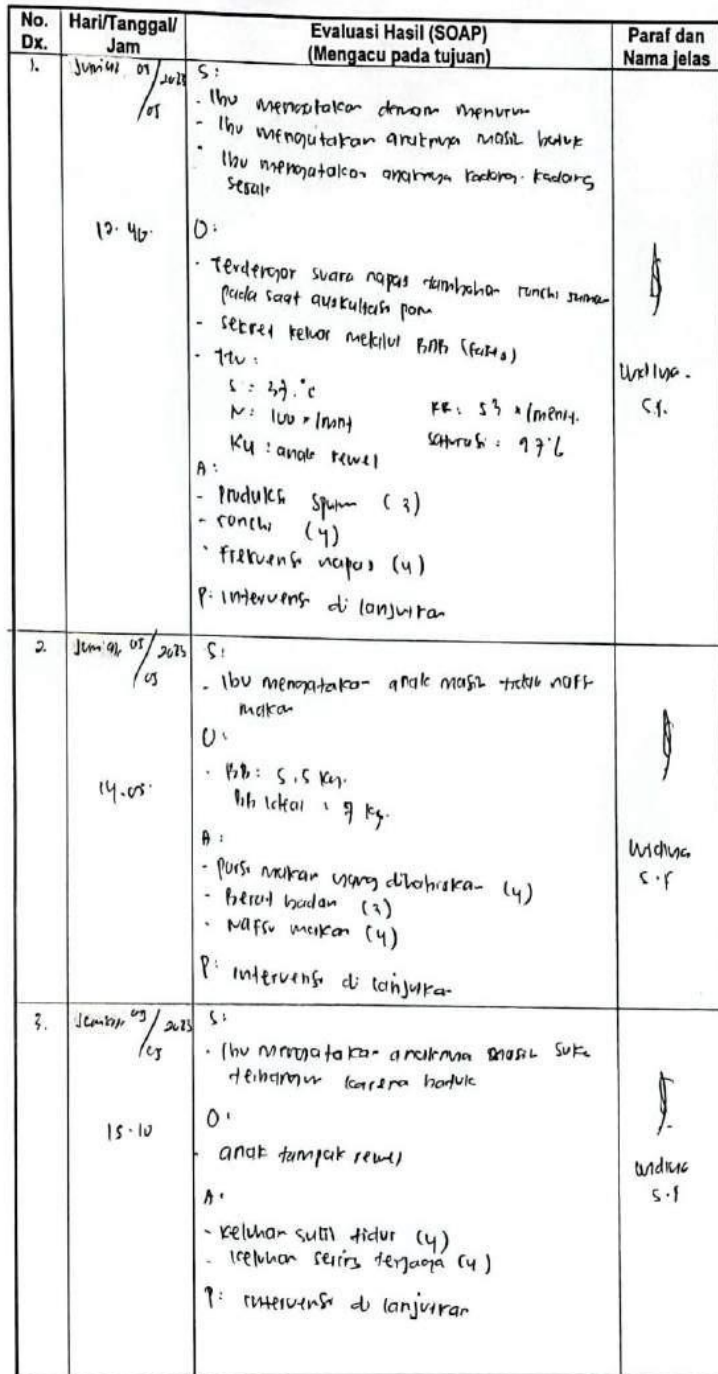 No. Dx.
Hari/Tanggal/ Jam
Evaluasi Hasil (SOAP)
(Mengacu pada tujuan)
Paraf dan Nama jelas
1.
/ 2023
/05
12.46.
S:
- Ibu mengatakan demam menurun
- Ibu mengatakan anaknya masih batuk
- Ibu mengatakan anaknya kadang-kadang
sesak
O:
- Terdengar suara napas tambahan ronchi
pada saat auskultasi paru
- sekret keluar melalui BAB (feses)
- TTV:
S: 37.°C
N: 100 x/mnt
RR: 53 x/menit.
Ku: anak rewel
saturasi: 97%
A:
- Produksi sputum (3)
- ronchi (4)
- Frekuensi napas (4)
P: intervensi di lanjutkan
S.F.
2.
05/2023
/05
14.05.
S:
- Ibu mengatakan anak masih tidak nafsu
makan
O:
- BB: 5.5 kg.
BB ideal: 7 kg.
A:
- porsi makan yang dihabiskan (4)
- Berat badan (3)
- Nafsu makan (4)
P: intervensi di lanjutkan
S.F
3.
/ 2023
/05
15.10
S:
- Ibu mengatakan anaknya masih suka
terbangun karena batuk
O:
- anak tampak rewel
A:
- keluhan sulit tidur (4)
- keluhan sering terjaga (4)
P: intervensi di lanjutkan
S.F